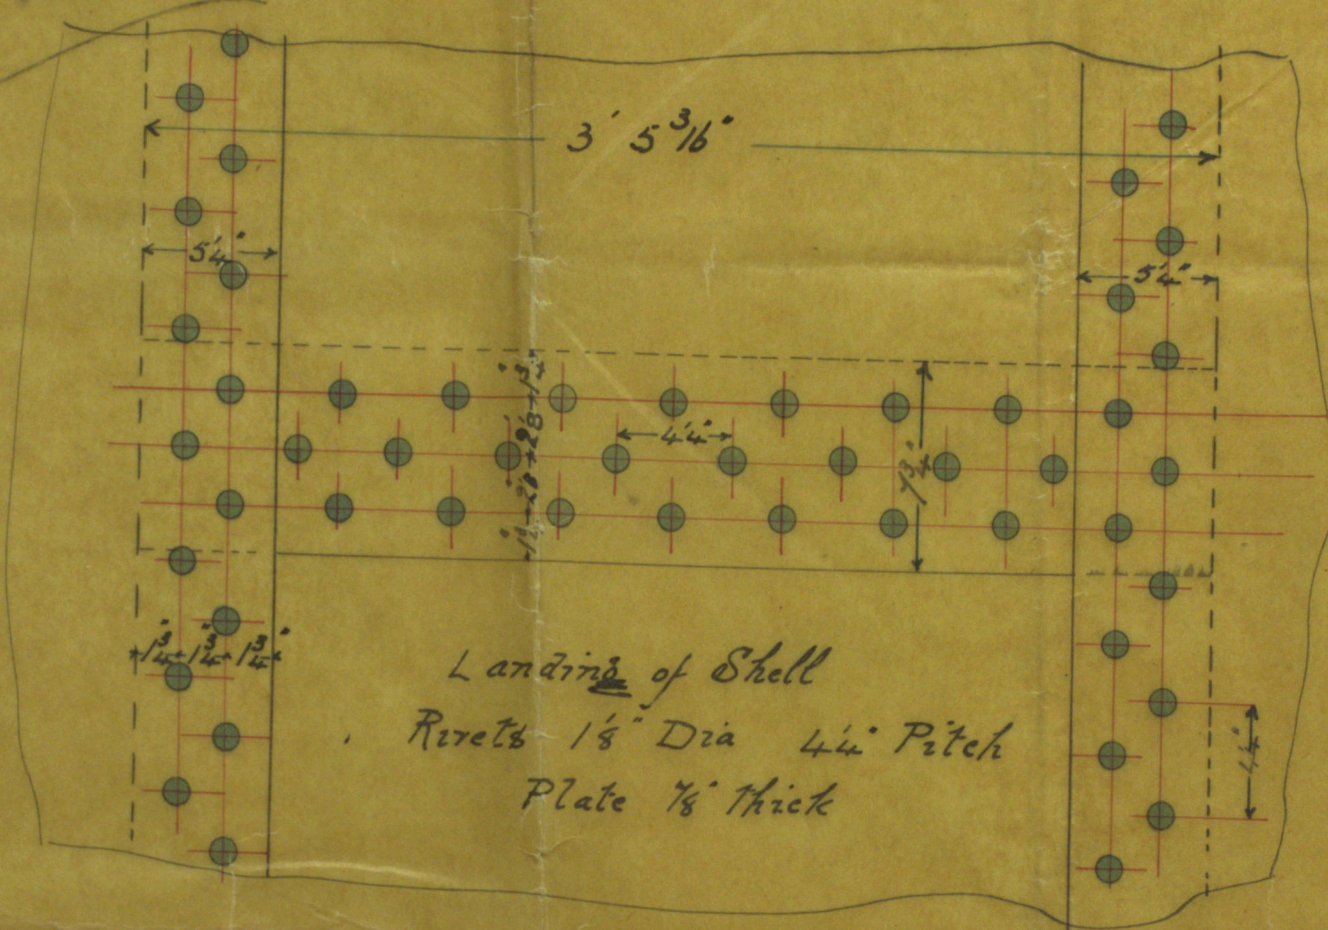 3' 5 3/16"
5 1/4"
5 1/4"
1 3/4"
2 1/8
2 1/8
1 3/4"
4 1/4"
7 3/4"
1 3/4" 1 3/4" 1 3/4"
Landing of Shell
Rivets 1 1/8" Dia 4 1/4" Pitch
Plate 7/8" thick
4 1/4"